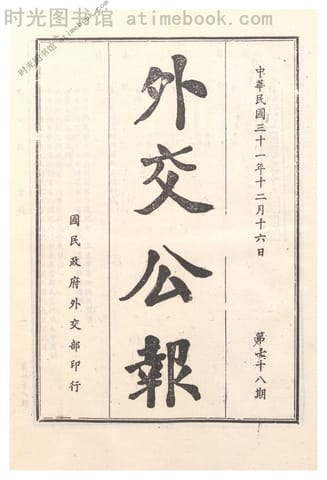 时光图书馆 - atimebook.com
时光图书馆 - atimebook.com
中華民國三十一年十二月十六日
第十八期
外交公報
國民政府外交部印行